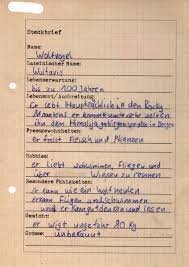 Steckbrief
Name:
Wolfvogel
Lateinischer Name:
Wulfavis
Lebenserwartung:
bis zu 100 Jahren
Lebensort/Ausbreitung:
er lebt Hauptsächlich in den Rocky
Mountens er kommt
in Bergen
Fressgewohnheiten:
er frisst Fleisch und Pflanzen
Hobbies:
er liebt schwimmen Fliegen und
über Wiesen zu rennen
Besondere Fähigkeiten:
Er kann wie ein Wolf heulen
er kann Flügen und schwimmen
und er kann gut denken und lesen
Gewicht:
er wigt ungefähr 80 Kg
Grösse:
unbekannt